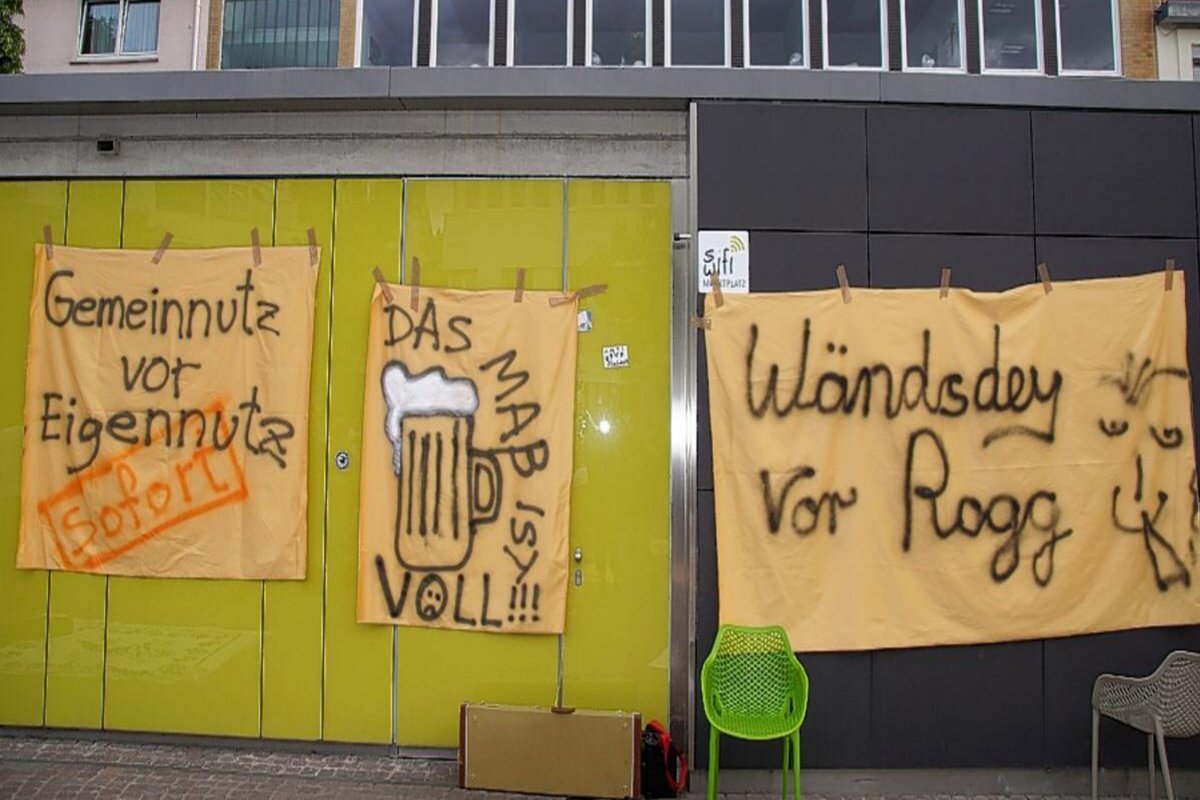 Gemeinnutz
vor
Eigennutz
sofort
DAS
MAß ISY
VOLL!!!
s
wifi
MARKTPLATZ
Wändsdey
Vor Rogg